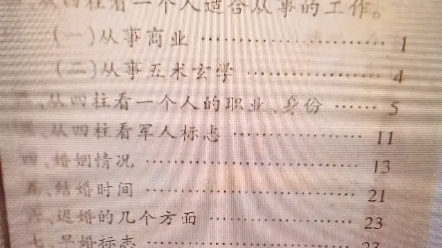 从四柱看一个人适合从事的工作。
(一)从事商业 …………………… 1
(二)从事五术玄学 …………………… 4
、从四柱看一个人的职业、身份 ………… 5
、从四柱看军人标志 …………………… 11
四、婚姻情况 …………………… 13
五、结婚时间 …………………… 21
六、迟婚的几个方面 …………………… 23
七、早婚标志 …………………… 23